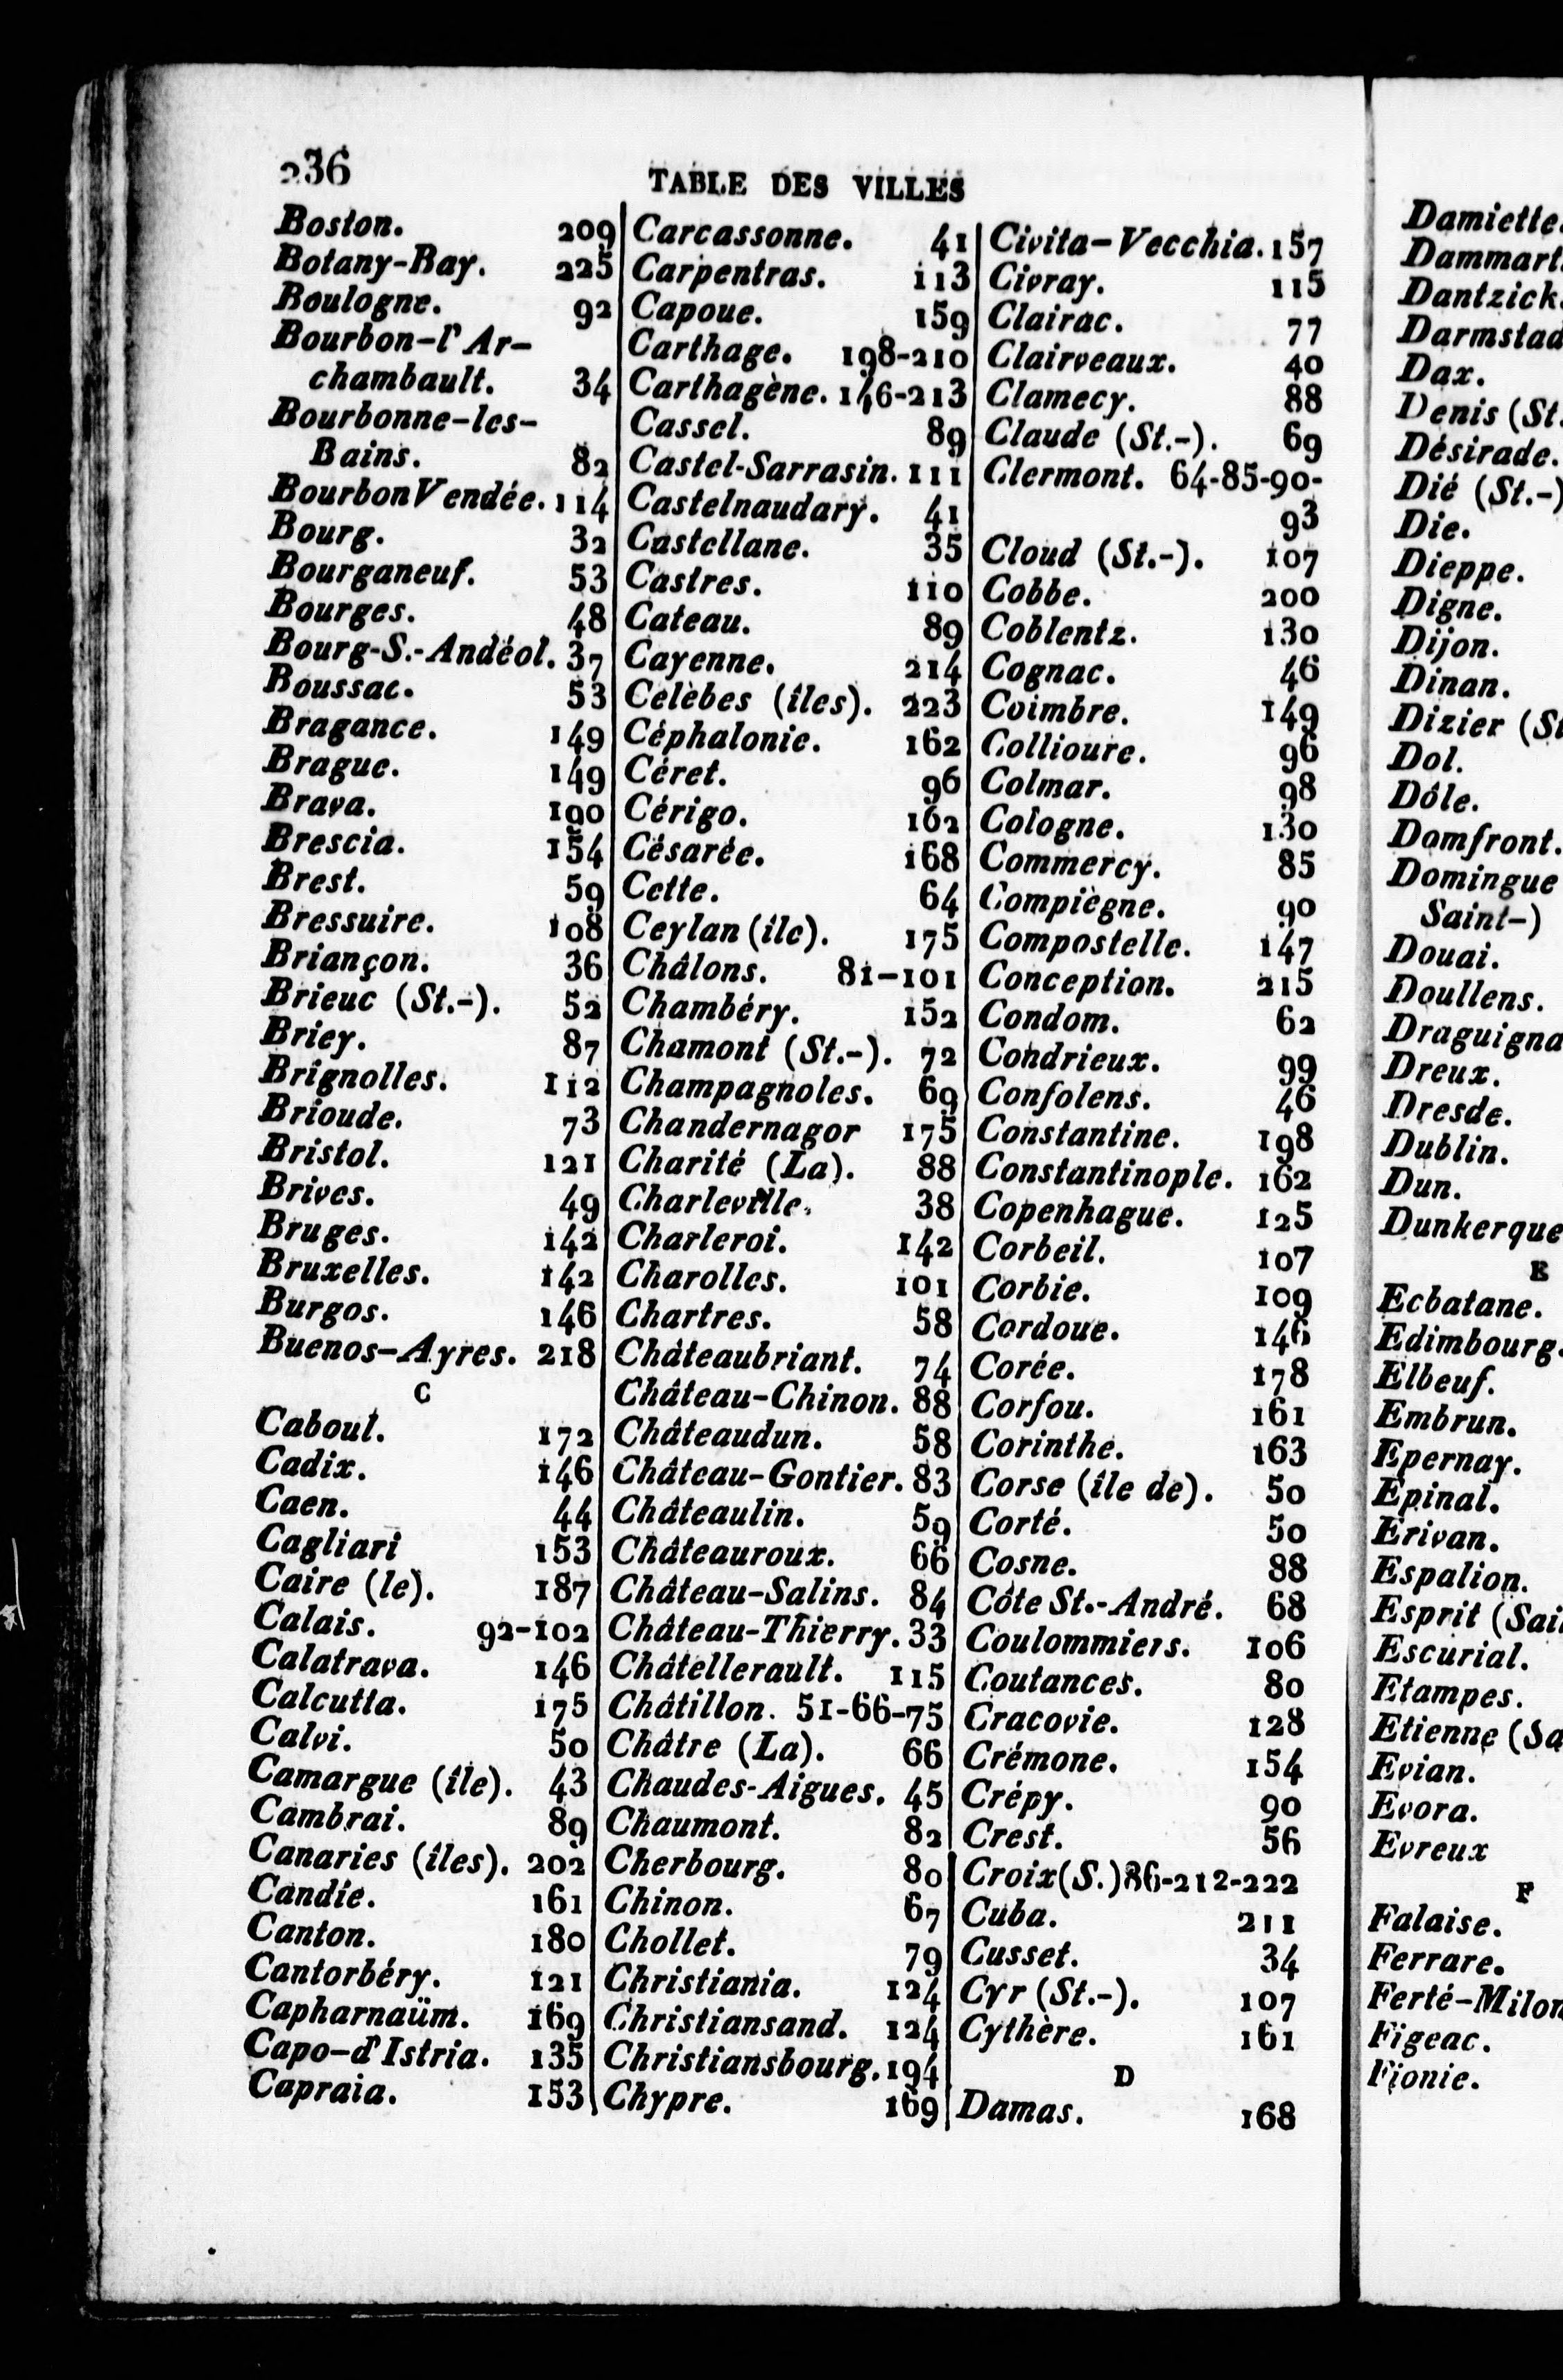 236
TABLE DES VILLES
Boston. 209
Botany-Bay. 225
Boulogne. 92
Bourbon-l'Ar-
chambault. 34
Bourbonne-les-
Bains. 82
Bourbon Vendée. 114
Bourg. 32
Bourganeuf. 53
Bourges. 48
Bourg-S.-Andéol. 37
Boussac. 53
Bragance. 149
Brague. 149
Brava. 190
Brescia. 154
Brest. 59
Bressuire. 108
Briançon. 36
Brieuc (St.-). 52
Briey. 87
Brignolles. 112
Brioude. 73
Bristol. 121
Brives. 49
Bruges. 142
Bruxelles. 142
Burgos. 146
Buenos-Ayres. 218
C
Caboul. 172
Cadix. 146
Caen. 44
Cagliari 153
Caire (le). 187
Calais. 92-102
Calatrava. 146
Calcutta. 175
Calvi. 50
Camargue (île). 43
Cambrai. 89
Canaries (îles). 202
Candie. 161
Canton. 180
Cantorbéry. 121
Capharnaüm. 169
Capo-d'Istria. 135
Capraia. 153
Carcassonne. 41
Carpentras. 113
Capoue. 159
Carthage. 198-210
Carthagène. 146-213
Cassel. 89
Castel-Sarrasin. 111
Castelnaudary. 41
Castellane. 35
Castres. 110
Cateau. 89
Cayenne. 214
Celèbes (îles). 223
Céphalonie. 162
Céret. 96
Cérigo. 162
Césarée. 168
Cette. 64
Ceylan (île). 175
Châlons. 81-101
Chambéry. 152
Chamont (St.-). 72
Champagnoles. 69
Chandernagor 175
Charité (La). 88
Charleville. 38
Charleroi. 142
Charolles. 101
Chartres. 58
Châteaubriant. 74
Château-Chinon. 88
Châteaudun. 58
Château-Gontier. 83
Châteaulin. 59
Châteauroux. 66
Château-Salins. 84
Château-Thierry. 33
Châtellerault. 115
Châtillon. 51-66-75
Châtre (La). 66
Chaudes-Aigues. 45
Chaumont. 82
Cherbourg. 80
Chinon. 67
Chollet. 79
Christiania. 124
Christiansand. 124
Christiansbourg. 194
Chypre. 169
Civita-Vecchia. 157
Civray. 115
Clairac. 77
Clairveaux. 40
Clamecy. 88
Claude (St.-). 69
Clermont. 64-85-90-
93
Cloud (St.-). 107
Cobbe. 200
Coblentz. 130
Cognac. 46
Coimbre. 149
Collioure. 96
Colmar. 98
Cologne. 130
Commercy. 85
Compiègne. 90
Compostelle. 147
Conception. 215
Condom. 62
Condrieux. 99
Confolens. 46
Constantine. 198
Constantinople. 162
Copenhague. 125
Corbeil. 107
Corbie. 109
Cordoue. 146
Corée. 178
Corfou. 161
Corinthe. 163
Corse (île de). 50
Corté. 50
Cosne. 88
Côte St.-André. 68
Coulommiers. 106
Coutances. 80
Cracovie. 128
Crémone. 154
Crépy. 90
Crest. 56
Croix (S.) 86-212-222
Cuba. 211
Cusset. 34
Cyr (St.-). 107
Cythère. 161
D
Damas. 168
Damiette.
Dammart
Dantzick
Darmstad
Dax.
Denis (St.
Désirade.
Dié (St.-)
Die.
Dieppe.
Digne.
Dijon.
Dinan.
Dizier (St
Dol.
Dôle.
Domfront.
Domingue
Saint-)
Douai.
Doullens.
Draguigna
Dreux.
Dresde.
Dublin.
Dun.
Dunkerque
E
Ecbatane.
Edimbourg.
Elbeuf.
Embrun.
Epernay.
Epinal.
Erivan.
Espalion.
Esprit (Sai
Escurial.
Etampes.
Etienne (Sa
Evian.
Evora.
Evreux
F
Falaise.
Ferrare.
Ferté-Milon
Figeac.
Fionie.